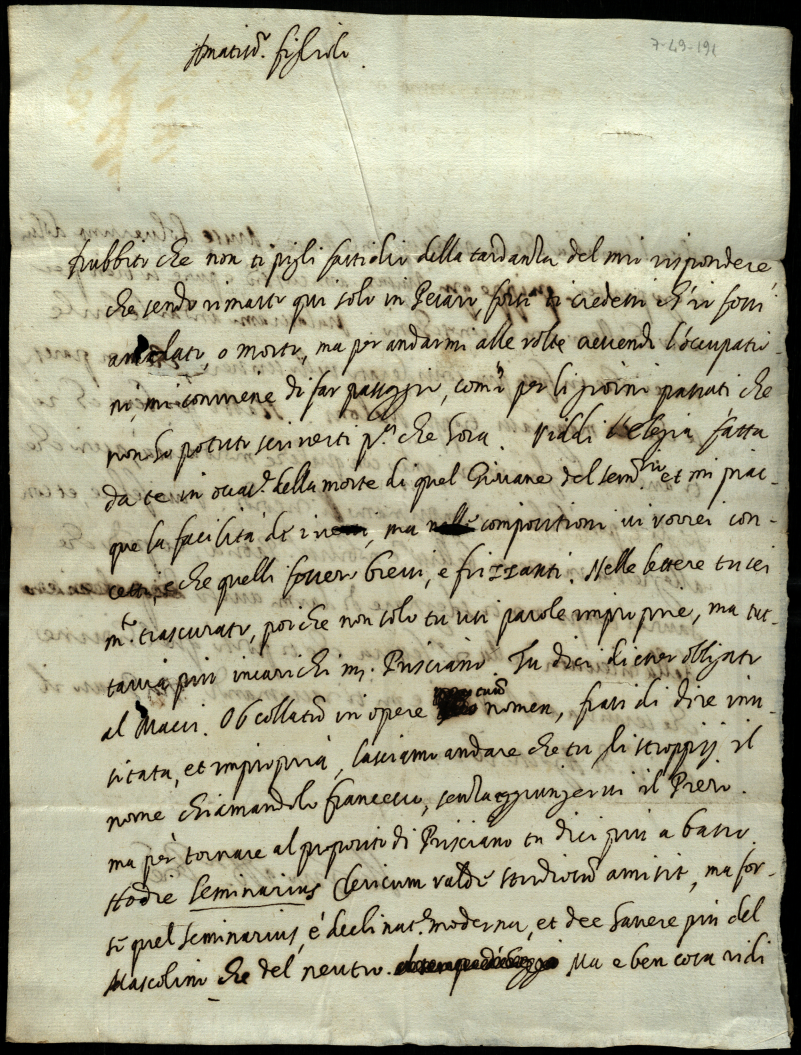 7-49-191
Amatiss.º figliolo.
Dubbito che non ti pigli fastidio della tardanza del mio rispondere,
che sendo rimasto qui solo in Pesaro, forsi ti credessi ch'io fossi
amalato, o morto, ma per andarmi alle volte crescendo l'occupatio-
ni, mi conviene di far passaggi, com'è per li giorni passati che
non ho potuto scriverti p.ª che hora. Viddi l'Elegia fatta
da te in occas.e della morte di quel Giovane del sem.rio et mi piac-
que la facilità de i versi, ma nelle compositioni ui vorrei con-
cetti, e che quelli fossero brevi, e frizzanti. Nelle lettere tu sei
m.to trascurato, poiche non solo tu usi parole improprie, ma tut-
tavia più incarichi m. Prisciano. Tu dici di esser obligato
al Macci. Ob collatū in opere suo cuiō nomen, frasi di dire inu-
sitata, et impropria, lasciamo andare che tu gli stroppij il
nome chiamandolo francesco, senza aggiungerui il Piero.
ma per tornare al proposito di Prisciano tu dici più a basso.
Hodie seminarius Clericum valde studiosū amisit, ma for-
se quel seminarius, é declinat.e moderna, et dee havere più del
Mascolino che del neutro. Ma e ben cosa ridi